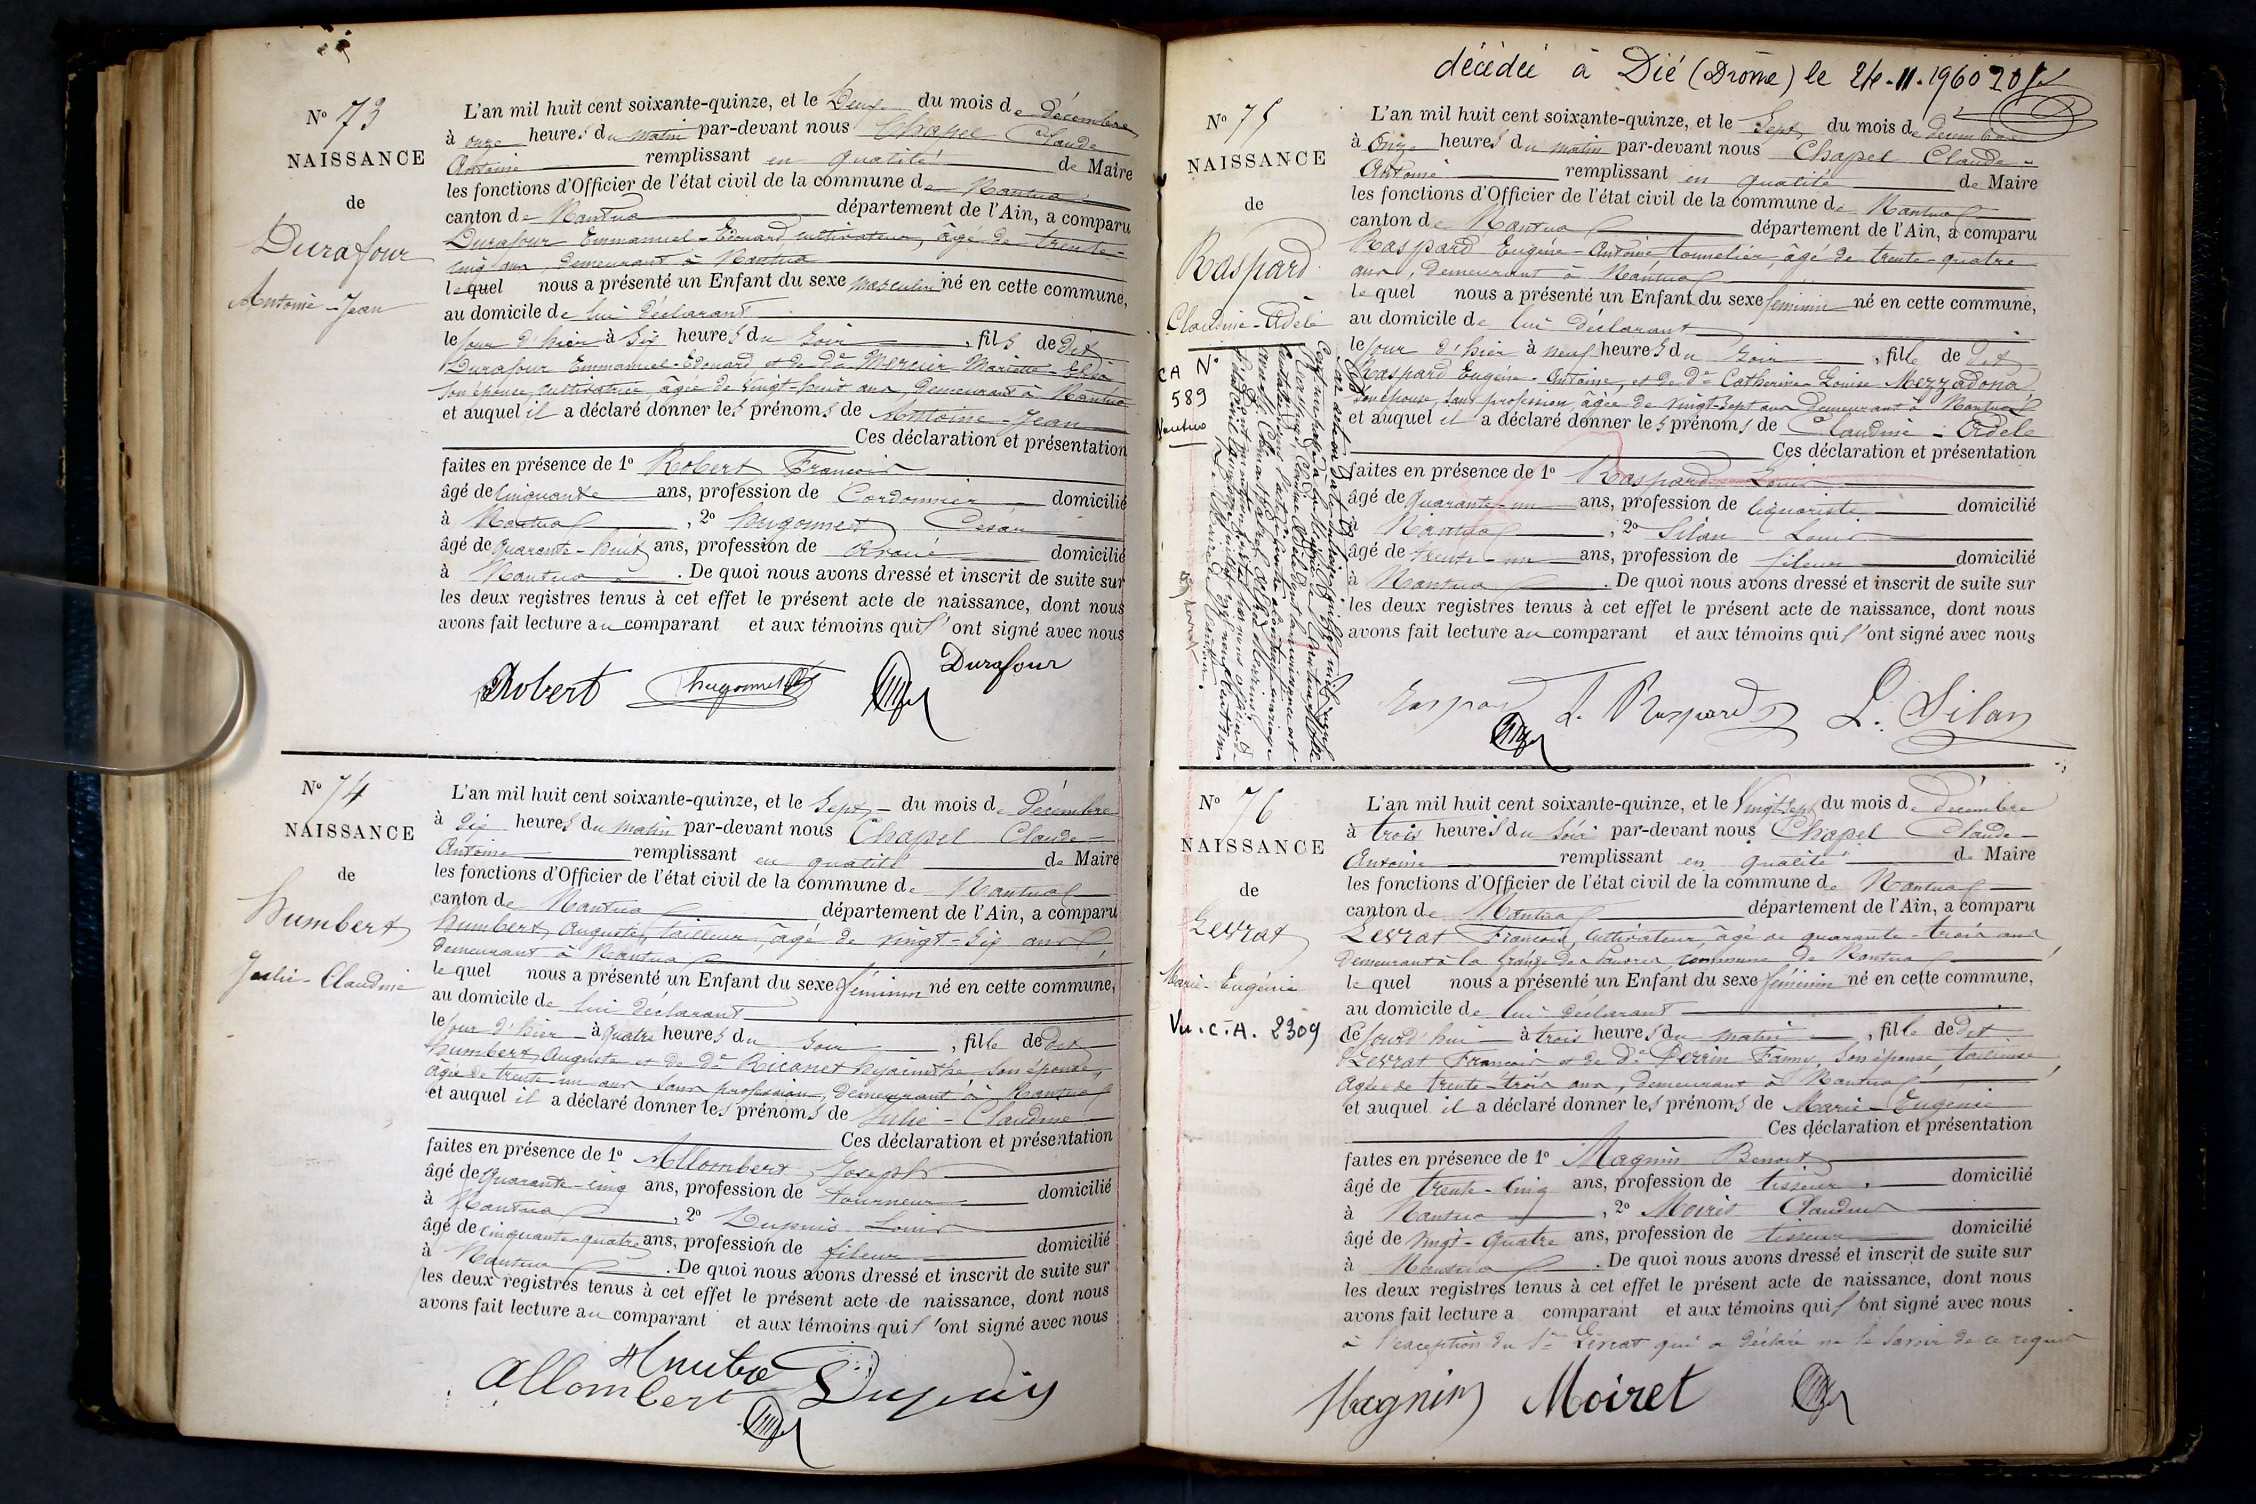 N° 73
NAISSANCE
de
Durafour
Antoine-Jean
L'an mil huit cent soixante-quinze, et le Deux du mois de Décembre
à onze heures du matin par-devant nous Chapel Claude
Antoine remplissant en qualité de Maire
les fonctions d'Officier de l'état civil de la commune de Nantua
canton de Nantua département de l'Ain, a comparu
Durafour Emmanuel-Edouard, cultivateur, âgé de trente-
cinq ans, demeurant à Nantua
lequel nous a présenté un Enfant du sexe masculin né en cette commune,
au domicile de lui déclarant
le jour d'hier à six heures du soir, fils de dit
Durafour Emmanuel-Edouard et de De Mercier Mariette-Elisa
son épouse, cultivatrice, âgée de vingt-huit ans, demeurant à Nantua
et auquel il a déclaré donner les prénoms de Antoine-Jean
Ces déclaration et présentation
faites en présence de 1° Robert François
âgé de cinquante ans, profession de Cordonnier domicilié
à Nantua, 2° hugonnet César
âgé de quarante-huit ans, profession de Avoué domicilié
à Nantua. De quoi nous avons dressé et inscrit de suite sur
les deux registres tenus à cet effet le présent acte de naissance, dont nous
avons fait lecture au comparant et aux témoins qui l'ont signé avec nous
Durafour
Robert hugonnet
N° 74
NAISSANCE
de
humbert
Julie-Claudine
L'an mil huit cent soixante-quinze, et le Sept du mois de Décembre
à dix heures du matin par-devant nous Chapel Claude-
Antoine remplissant en qualité de Maire
les fonctions d'Officier de l'état civil de la commune de Nantua
canton de Nantua département de l'Ain, a comparu
humbert, Auguste, tailleur âgé de vingt-six ans
demeurant à Nantua
lequel nous a présenté un Enfant du sexe féminin né en cette commune,
au domicile de lui déclarant
le jour d'hier à quatre heures du soir, fille de dit
humbert, Auguste et de De Ricanet hyacinthe son épouse,
âgée de trente-un ans sans profession, demeurant à Nantua
et auquel il a déclaré donner les prénoms de Julie-Claudine
Ces déclaration et présentation
faites en présence de 1° Allombert Joseph
âgé de quarante-cinq ans, profession de tourneur domicilié
à Nantua, 2° Dupuis Louis
âgé de cinquante-quatre ans, profession de fileur domicilié
à Nantua. De quoi nous avons dressé et inscrit de suite sur
les deux registres tenus à cet effet le présent acte de naissance, dont nous
avons fait lecture au comparant et aux témoins qui l'ont signé avec nous
Allombert Dupuis
décédée à Dié (Drôme) le 24.11.1960
N° 75
NAISSANCE
de
Raspard
Claudine-Adèle
CA N°
589
Nantua
L'an mil huit cent soixante-quinze, et le Sept du mois de décembre
à Onze heures du matin par-devant nous Chapel Claude-
Antoine remplissant en qualité de Maire
les fonctions d'Officier de l'état civil de la commune de Nantua
canton de Nantua département de l'Ain, a comparu
Raspard Eugène-Antoine tonnelier, âgé de trente-quatre
ans, demeurant à Nantua
lequel nous a présenté un Enfant du sexe féminin né en cette commune,
au domicile de lui déclarant
le jour d'hier à neuf heures du soir, fille de dit
Raspard Eugène-Antoine, et de De Catherine-Louise Mezzadona
son épouse, sans profession, âgée de vingt-sept ans demeurant à Nantua
et auquel il a déclaré donner les prénoms de Claudine-Adèle
Ces déclaration et présentation
faites en présence de 1° Raspard Louis
âgé de quarante-un ans, profession de liquoriste domicilié
à Nantua, 2° Silan Louis
âgé de trente-un ans, profession de fileur domicilié
à Nantua. De quoi nous avons dressé et inscrit de suite sur
les deux registres tenus à cet effet le présent acte de naissance, dont nous
avons fait lecture au comparant et aux témoins qui l'ont signé avec nous
Raspard L. Raspard L. Silan
N° 76
NAISSANCE
de
Levrat
Marie-Eugénie
Vu. C. A. 2309
L'an mil huit cent soixante-quinze, et le Vingt-sept du mois de Décembre
à trois heures du soir par-devant nous Chapel Claude-
Antoine remplissant en qualité de Maire
les fonctions d'Officier de l'état civil de la commune de Nantua
canton de Nantua département de l'Ain, a comparu
Levrat François, cultivateur âgé de quarante-trois ans
demeurant à la Grange des commune de Nantua
lequel nous a présenté un Enfant du sexe féminin né en cette commune,
au domicile de lui déclarant
ce jourd'hui à trois heures du matin, fille de dit
Levrat François et de De Perrin Fanny, son épouse, tailleuse,
âgée de trente-trois ans, demeurant à Nantua
et auquel il a déclaré donner les prénoms de Marie-Eugénie
Ces déclaration et présentation
faites en présence de 1° Magnin Benoit
âgé de trente-cinq ans, profession de tisseur domicilié
à Nantua, 2° Moiret Claudius
âgé de vingt-quatre ans, profession de tisseur domicilié
à Nantua. De quoi nous avons dressé et inscrit de suite sur
les deux registres tenus à cet effet le présent acte de naissance, dont nous
avons fait lecture a comparant et aux témoins qui l'ont signé avec nous
à l'exception du Sr Levrat qui a déclaré ne le savoir de ce requis
Magnin Moiret